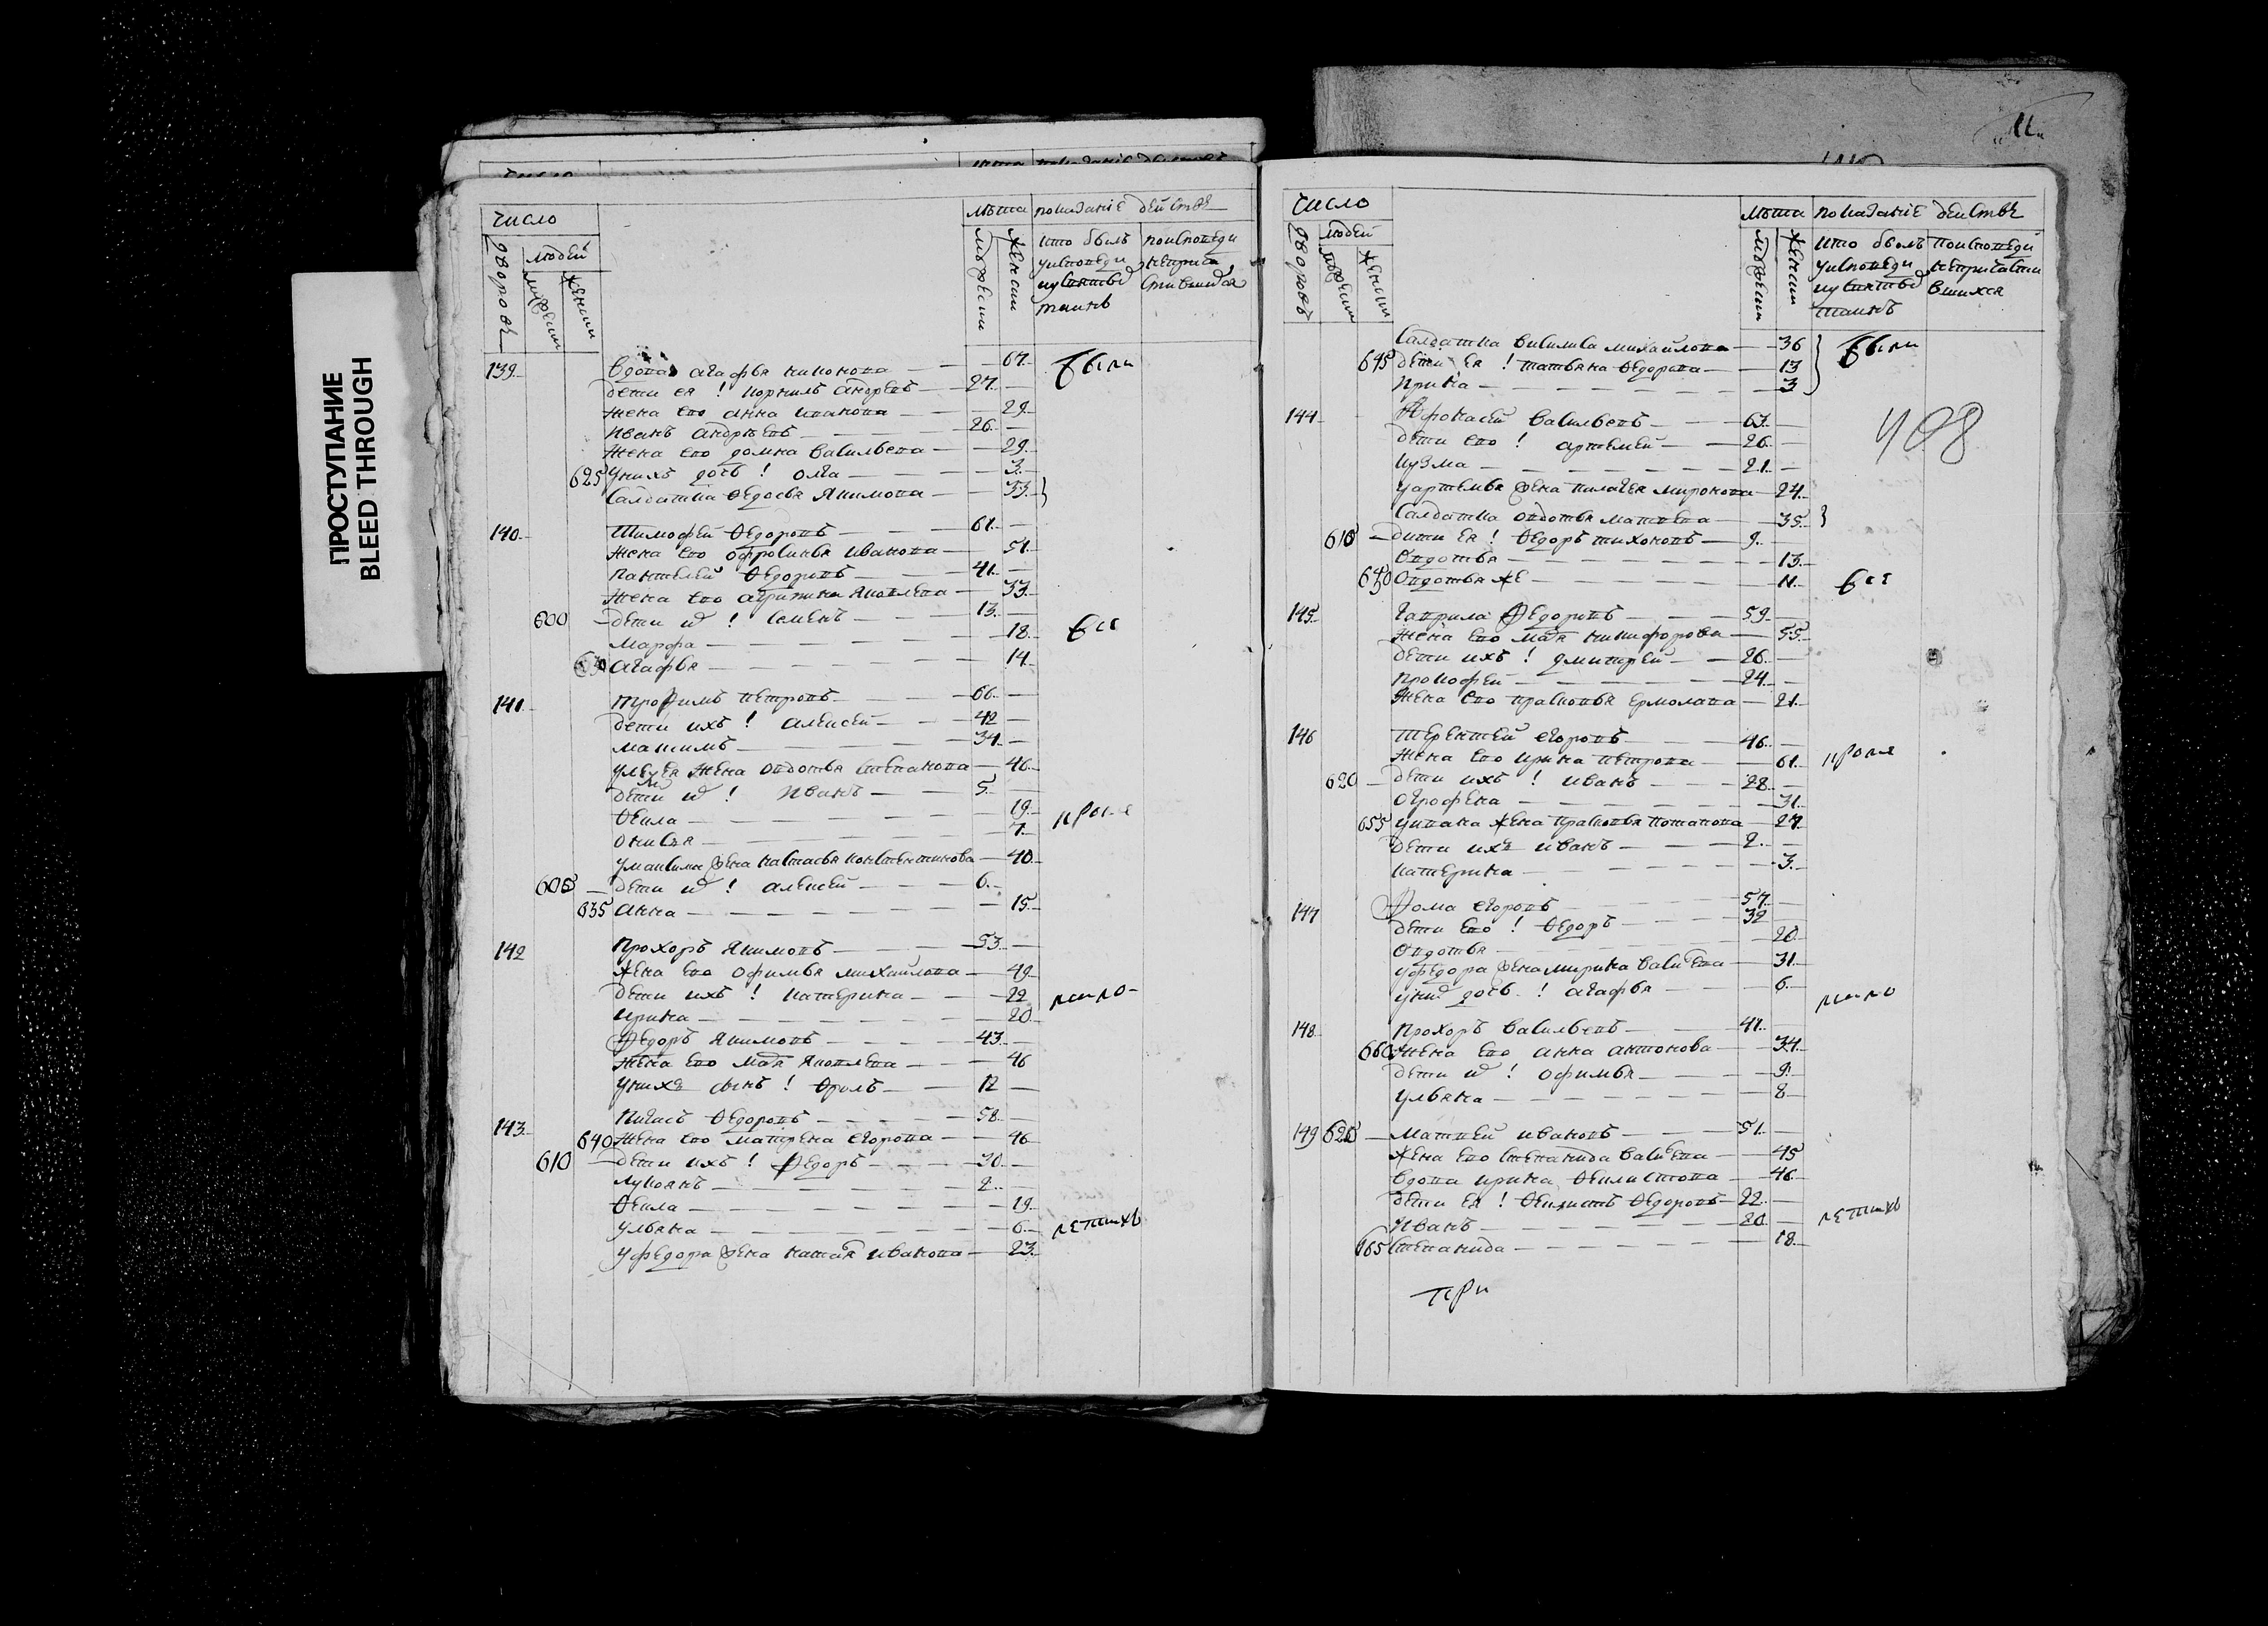 ПРОСТУПАНИЕ
BLEED THROUGH
11
число
лѣта показаніе действъ
дворовъ
людей
мужеска
женска
мужеска
женска
кто былъ у исповеди и у святыхъ таинъ
по исповеди не причастившихся
139 Вдова агафья никонова 67
дети ея ! корнилъ андреевъ 27
жена ево анна иванова 29
иванъ андрѣевъ 26
жена ево домна васильева 29
625 у нихъ дочь ! олга 3
салдатка ѳедосья якимова 33
были
140 Тимофей ѳедоровъ 61
жена ево офросинья иванова 51
пантелей ѳедоровъ 41
жена ево агрипина яковлева 33
600 дети их ! семенъ 13
марфа 18
630 агафья 14
всѣ
141 трофимъ петровъ 66
дети ихъ ! алексей 42
максимъ 34
жена овдотья степанова 46
дети их ! иванъ 5
ѳекла 19
7
у максима жена настасья константинова 40
605 дети их ! алексей 6
635 анна 15
кроме
142 Прохоръ якимовъ 53
жена ево офимья михайлова 49
дети ихъ ! катерина 22
ирина 20
ѳедоръ якимовъ 43
жена ево марья яковлева 46
у нихъ сынъ ! ѳролъ 12
мало
143 ѳедоровъ 58
640 жена ево матрена егорова 46
610 дети ихъ ! ѳедоръ 30
лукоянъ 2
ѳекла 19
ульяна 6
у федора жена наталья иванова 23
летнихъ
число
лѣта показаніе действъ
дворовъ
людей
мужеска
женска
мужеска
женска
кто былъ у исповеди и у святыхъ таинъ
по исповеди не причастившихся
салдатка василиса михайлова 36
645 дети ея ! татьяна ѳедорова 13
ирина 3
были
408
144 Афонасей васильевъ 63
дети ево ! артемей 26
кузма 21
у артемья жена пелагея миронова 24
салдатка овдотья матвева 35
615 дети ея ! ѳедоръ тихоновъ 9
овдотья 13
650 овдотья же 11
всѣ
145 гаврила ѳедоровъ 59
жена ево марья никифорова 55
дети ихъ ! дмитрей 26
прокофей 24
жена ево прасковья ермолаева 21
146 терентей егоровъ 46
жена ево ирина петрова 61
620 дети ихъ ! иванъ 28
огрофена 31
655 у ивана жена прасковья потапова 27
дети ихъ иванъ 2
катерина 3
кроме
147 ѳома егоровъ 57
дети ево ! ѳедоръ 32
овдотья 20
у федора жена марина васильева 31
у них дочь ! агафья 6
мало
148 Прохоръ васильевъ 41
660 жена ево анна антонова 34
дети их ! офимья 9
ульяна 8
149 625 Матвей ивановъ 51
жена ево степанида васильева 45
вдова ирина ѳеклистова 46
дети ея ! ѳеклистъ ѳедоровъ 22
иванъ 20
665 степанида 18
летнихъ
при